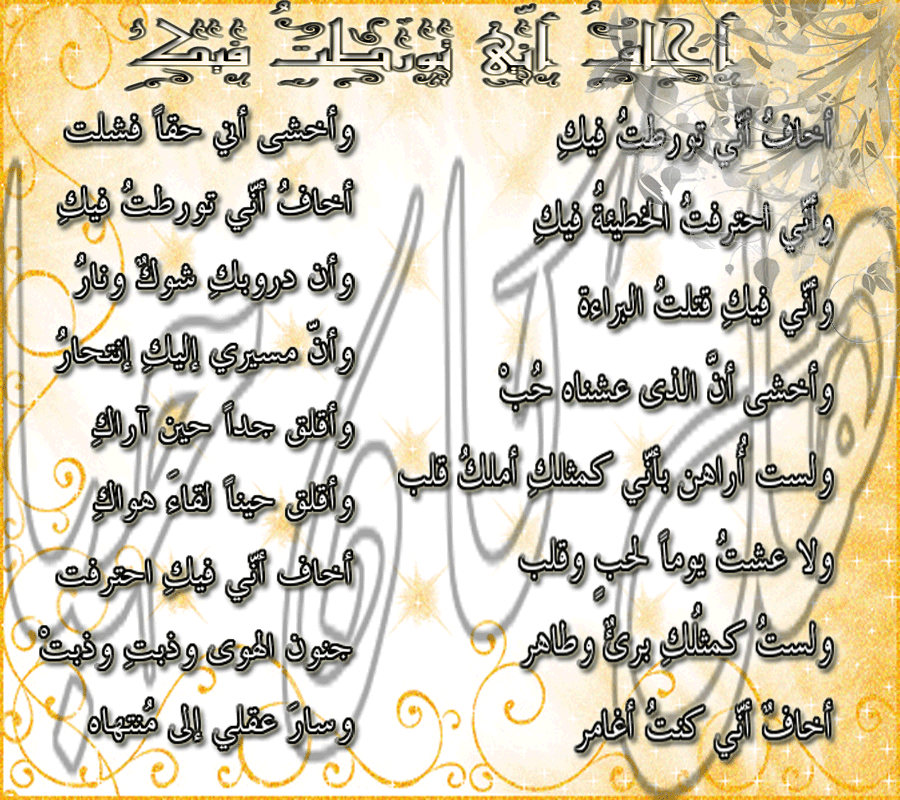 أخافُ أنّي تورطتُ فيكِ
أخافُ أنّي تورطتُ فيكِ
وأنّي احترفتُ الخطيئةُ فيكِ
وأنّي فيكِ قتلتُ البراءة
وأخشى أنَّ الذى عشناه حُبْ
ولست أُراهن بأنّي كمثلكِ أملكُ قلب
ولا عشتُ يوماً لحبٍ وقلب
ولستُ كمثلُكِ برئٌ وطاهر
أخافٌ أنّي كنتُ أغامر
وأخشى أني حقاً فشلت
أخافُ أنّي تورطتُ فيكِ
وأن دروبكِ شوكٌ ونارُ
وأنّ مسيري إليكِ إنتحارُ
وأقلق جداً حين آراكِ
وأقلق حيناً لقاءَ هواكِ
أخاف أنّي فيكِ احترفت
جنون الهوى وذبتِ وذبتْ
وسارَ عقلي إلى مُنتهاه